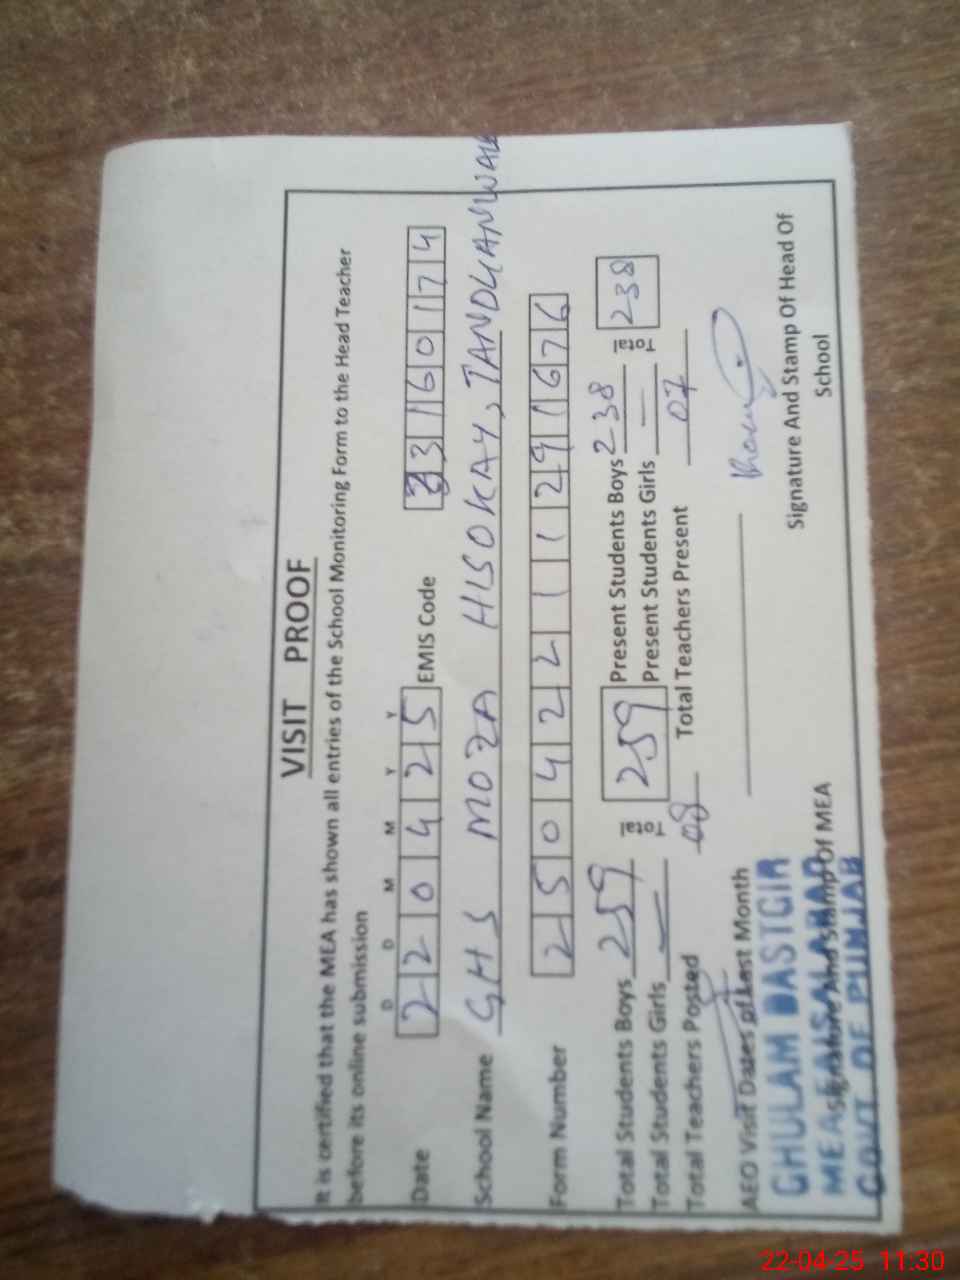 VISIT PROOF
It is certified that the MEA has shown all entries of the School Monitoring Form to the Head Teacher
before its online submission
D D M M Y Y
Date 220425 EMIS Code 33160174
School Name GHS MOZA HISOKAY, TANDLIANWALA
Form Number 250422111291676
Total Students Boys 259 Total 259 Present Students Boys 238 Total 238
Total Students Girls — Present Students Girls —
Total Teachers Posted 08 Total Teachers Present 07
AEO Visit Dates of Last Month
GHULAM DASTGIR
MEA FAISALABAD
GOVT. OF PUNJAB
Signature And Stamp Of MEA
Signature And Stamp Of Head Of
School
22-04-25 11:30